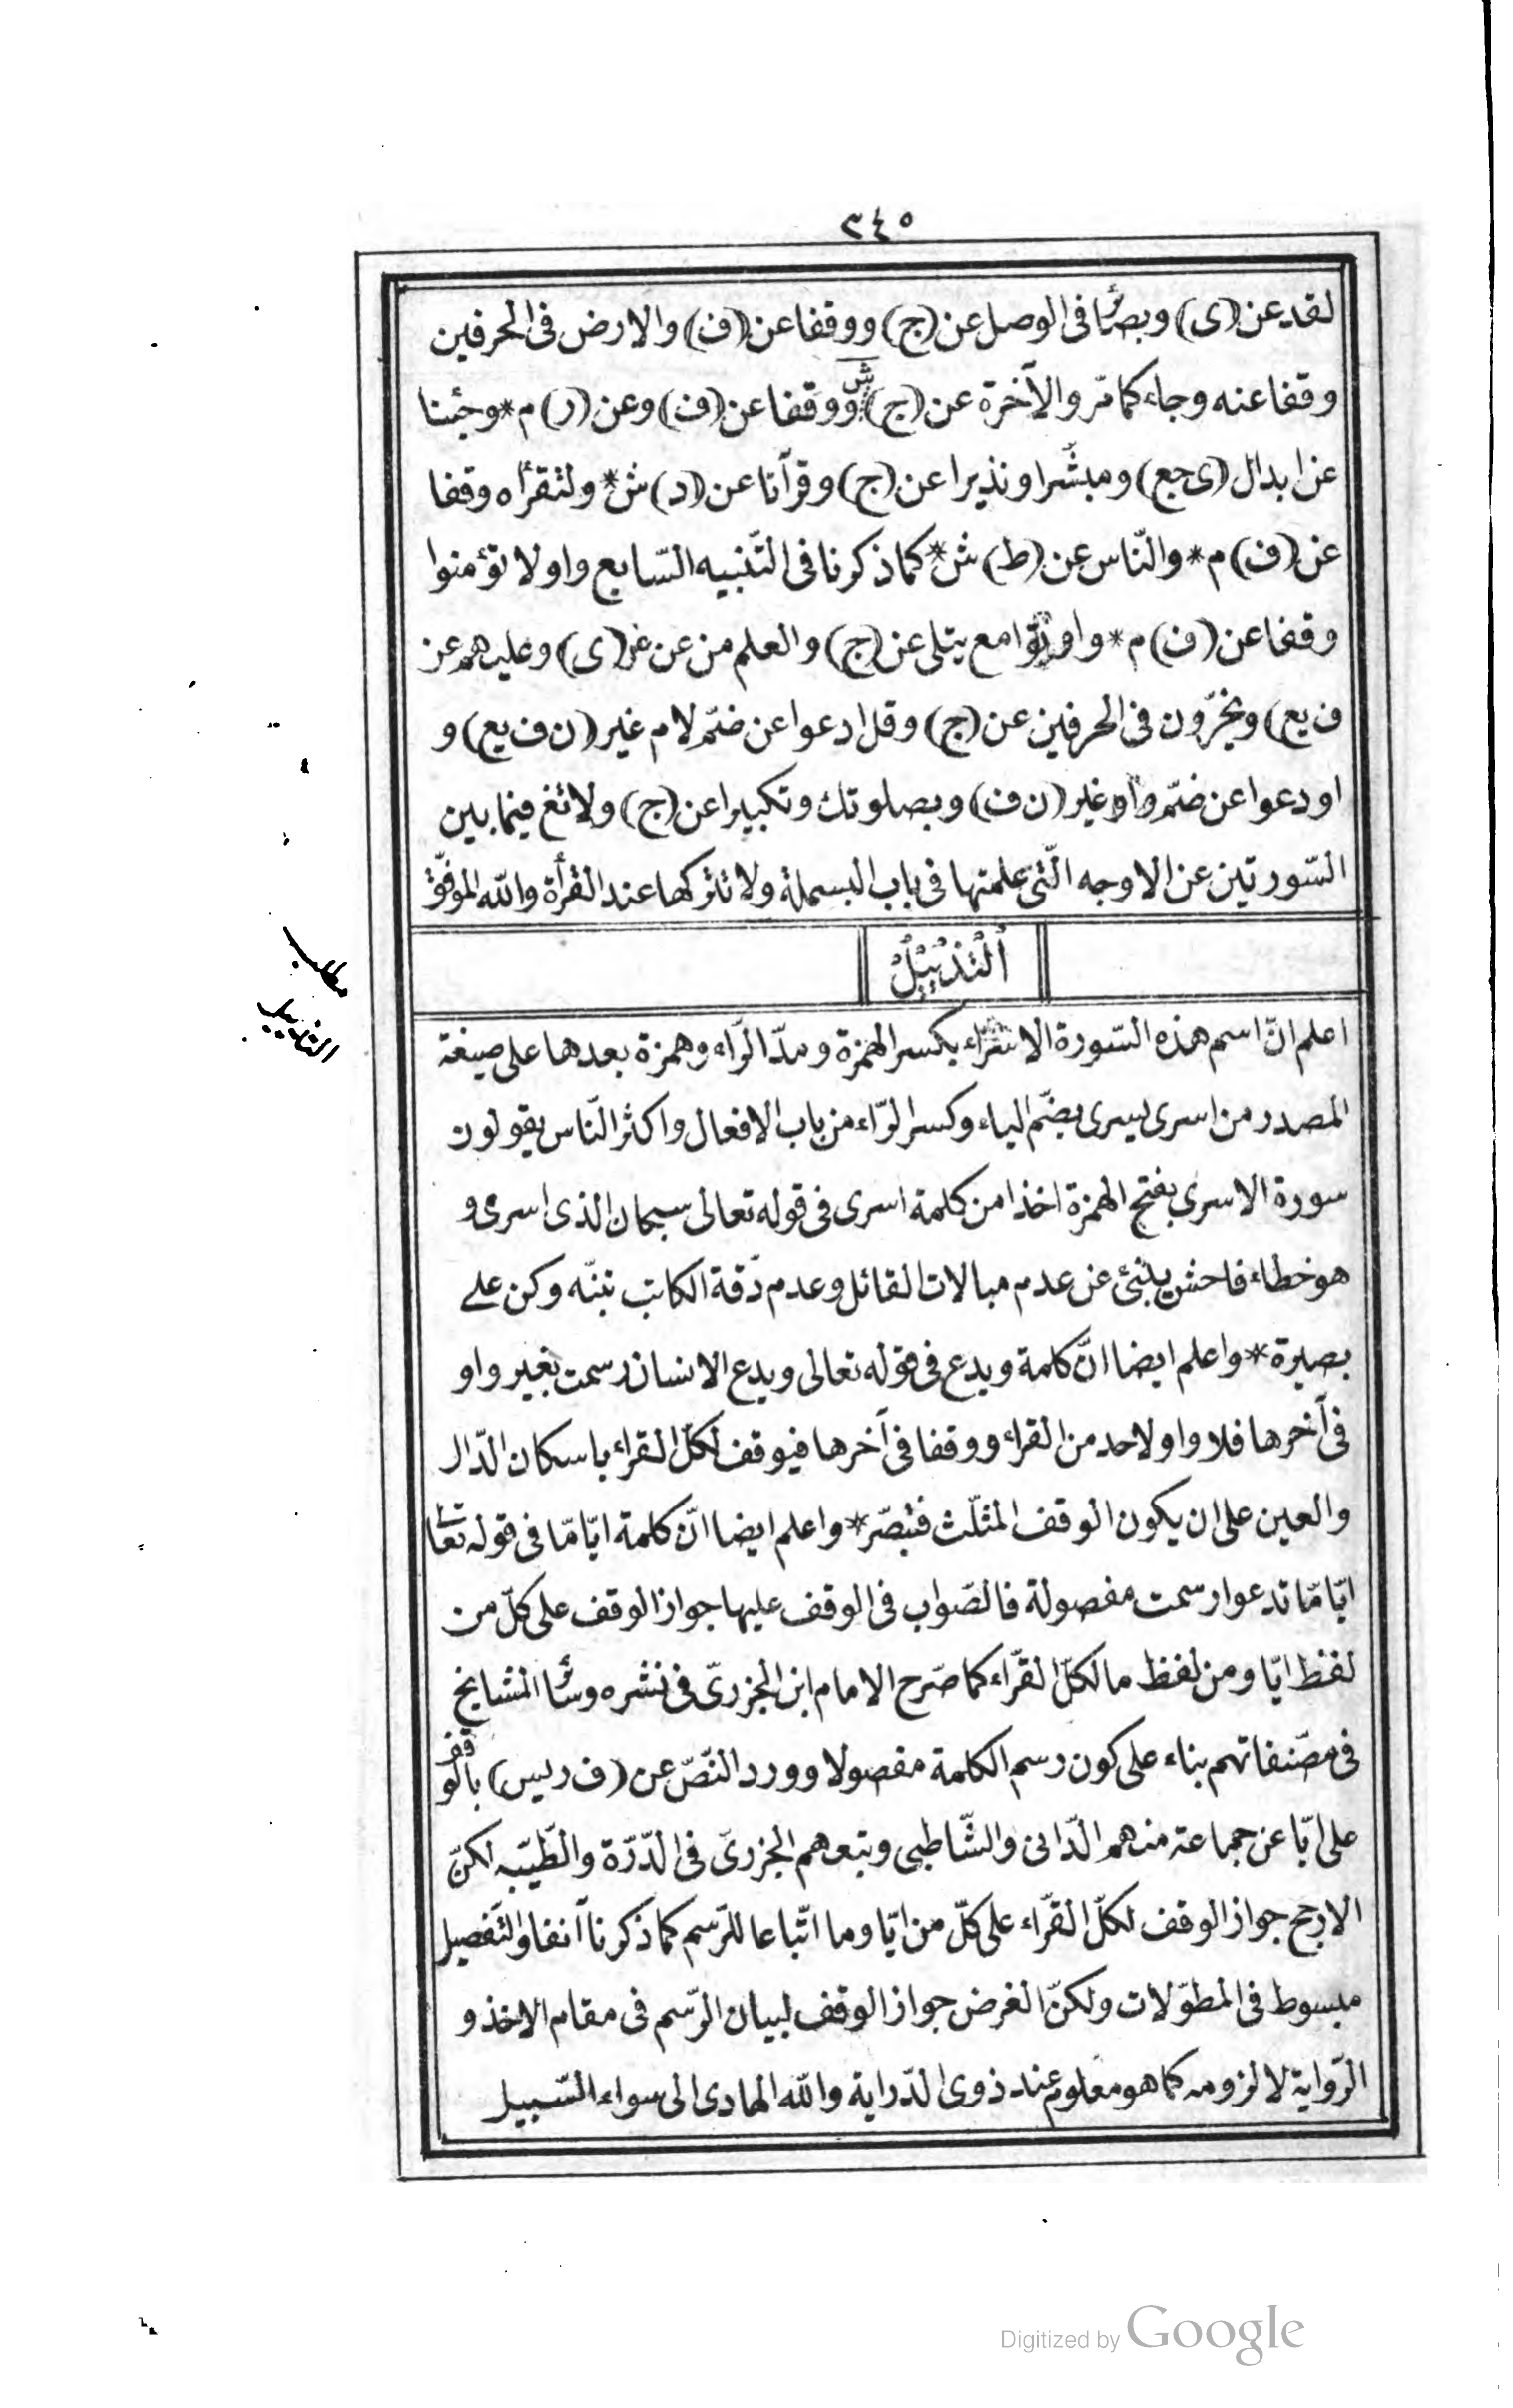 ٣٤٥
لقد عن (ى) وبصائر فى الوصل عن (ج) ووقفا عن (ف) والارض فى الحرفين
وقفا عنه وجاء كما مر والآخرة عن (ج) ش ووقفا عن (ف) وعن (ر) م * وجئنا
عن ابدال (ى جع) ومبشّرا ونذيرا عن (ج) وقرآنا عن (د) ش * ولتقرأه وقفا
عن (ف) م * والنّاس عن (ط) ش * كما ذكرنا فى التّنبيه السّابع واو لا تؤمنوا
وقفا عن (ف) م * واوتوا مع يتلى عن (ج) والعلم من عن غن (ى) وعليهم عن
ف يع) ويخرّون فى الحرفين عن (ج) وقل ادعوا عن ضمّ لام غير (ن ف يع) و
او دعوا عن ضمّ واو غير (ن ف) وبصلوتك وتكبيرا عن (ج) ولا تغ فيما بين
السّورتين عن الاوجه الّتى علمتها فى باب البسملة ولا تتركها عند القرأة والله الموفّق
اَلتَّذْيِيلُ
مطلب
التذييل
اعلم انّ اسم هذه السّورة الاسراء بكسر الهمزة ومدّ الرّاء وهمزة بعدها على صيغة
المصدر من اسرى يسرى بضّم الياء وكسر الرّاء من باب الافعال واكثر النّاس يقولون
سورة الاسرى بفتح الهمزة اخذا من كلمة اسرى فى قوله تعالى سبحان الذى اسرى و
هو خطاء فاحش ينبئ عن عدم مبالات القائل وعدم دقّة الكاتب تنبّه وكن على
بصيرة * واعلم ايضا انّ كلمة ويدع فى قوله تعالى ويدع الانسان رسمت بغير واو
فى آخرها فلا واو لاحد من القراء ووقفا فى آخرها فيوقف لكلّ القراء باسكان الدّال
والعين على ان يكون الوقف المثلّث فتبصّر * واعلم ايضا انّ كلمة ايّامّا فى قوله تعا
ايّامّا تدعوا رسمت مفصولة فالصّواب فى الوقف عليها جواز الوقف على كلّ من
لفظ ايّا ومن لفظ ما لكلّ القرّاء كما صّرح الامام ابن الجزرىّ فى نشره وسائر المشايخ
فى مصّنفاتهم بناء على كون رسم الكلمة مفصولا وورد النّصّ عن (ف ر يس) بالوقف
على ايّا عن جماعة منهم الدّانى والشّاطبى وتبعهم الجزرىّ فى الدّرّة والطّيّبه لكنّ
الارجح جواز الوقف لكلّ القرّاء على كلّ من ايّا وما اتّباعا للرّسم كما ذكرنا آنفا والتّفصيل
مبسوط فى المطوّلات ولكنّ الغرض جواز الوقف لبيان الرّسم فى مقام الاخذ و
الرّواية لا لزومه كما هو معلوم عند ذوى الدّراية والله الهادى الى سواء السّبيل
Digitized by Google